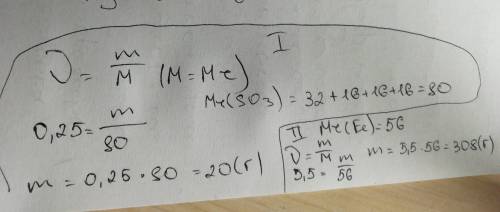 I
ν = m/M (M = Mr)
Mr(SO3) = 32+16+16+16=80
0,25 = m/80
m = 0,25 · 80 = 20(г)
II Mr(Fe)=56
ν = m/M m = 5,5 · 56 = 308(г)
5,5 = m/56